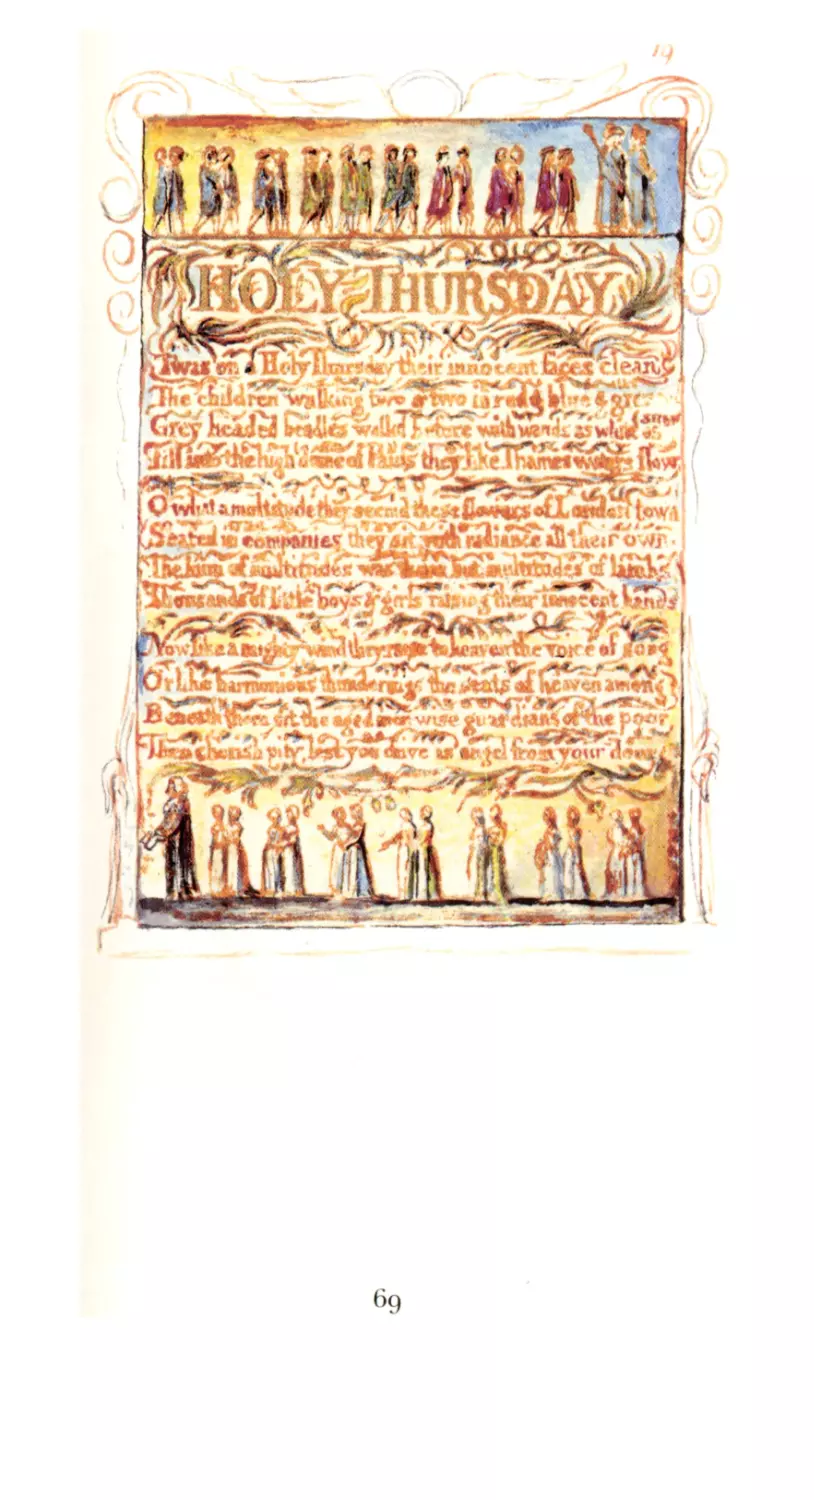 19
HOLY THURSDAY
Twas on a Holy Thursday their innocent faces clean
The children walking two & two in red & blue & green
Grey headed beadles walkd before with wands as white as snow
Till into the high dome of Pauls they like Thames waters flow
O what a multitude they seemd these flowers of London town
Seated in companies they sit with radiance all their own
The hum of multitudes was there but multitudes of lambs
Thousands of little boys & girls raising their innocent hands
Now like a mighty wind they raise to heaven the voice of song
Or like harmonious thunderings the seats of heaven among
Beneath them sit the aged men wise guardians of the poor
Then cherish pity, lest you drive an angel from your door
69